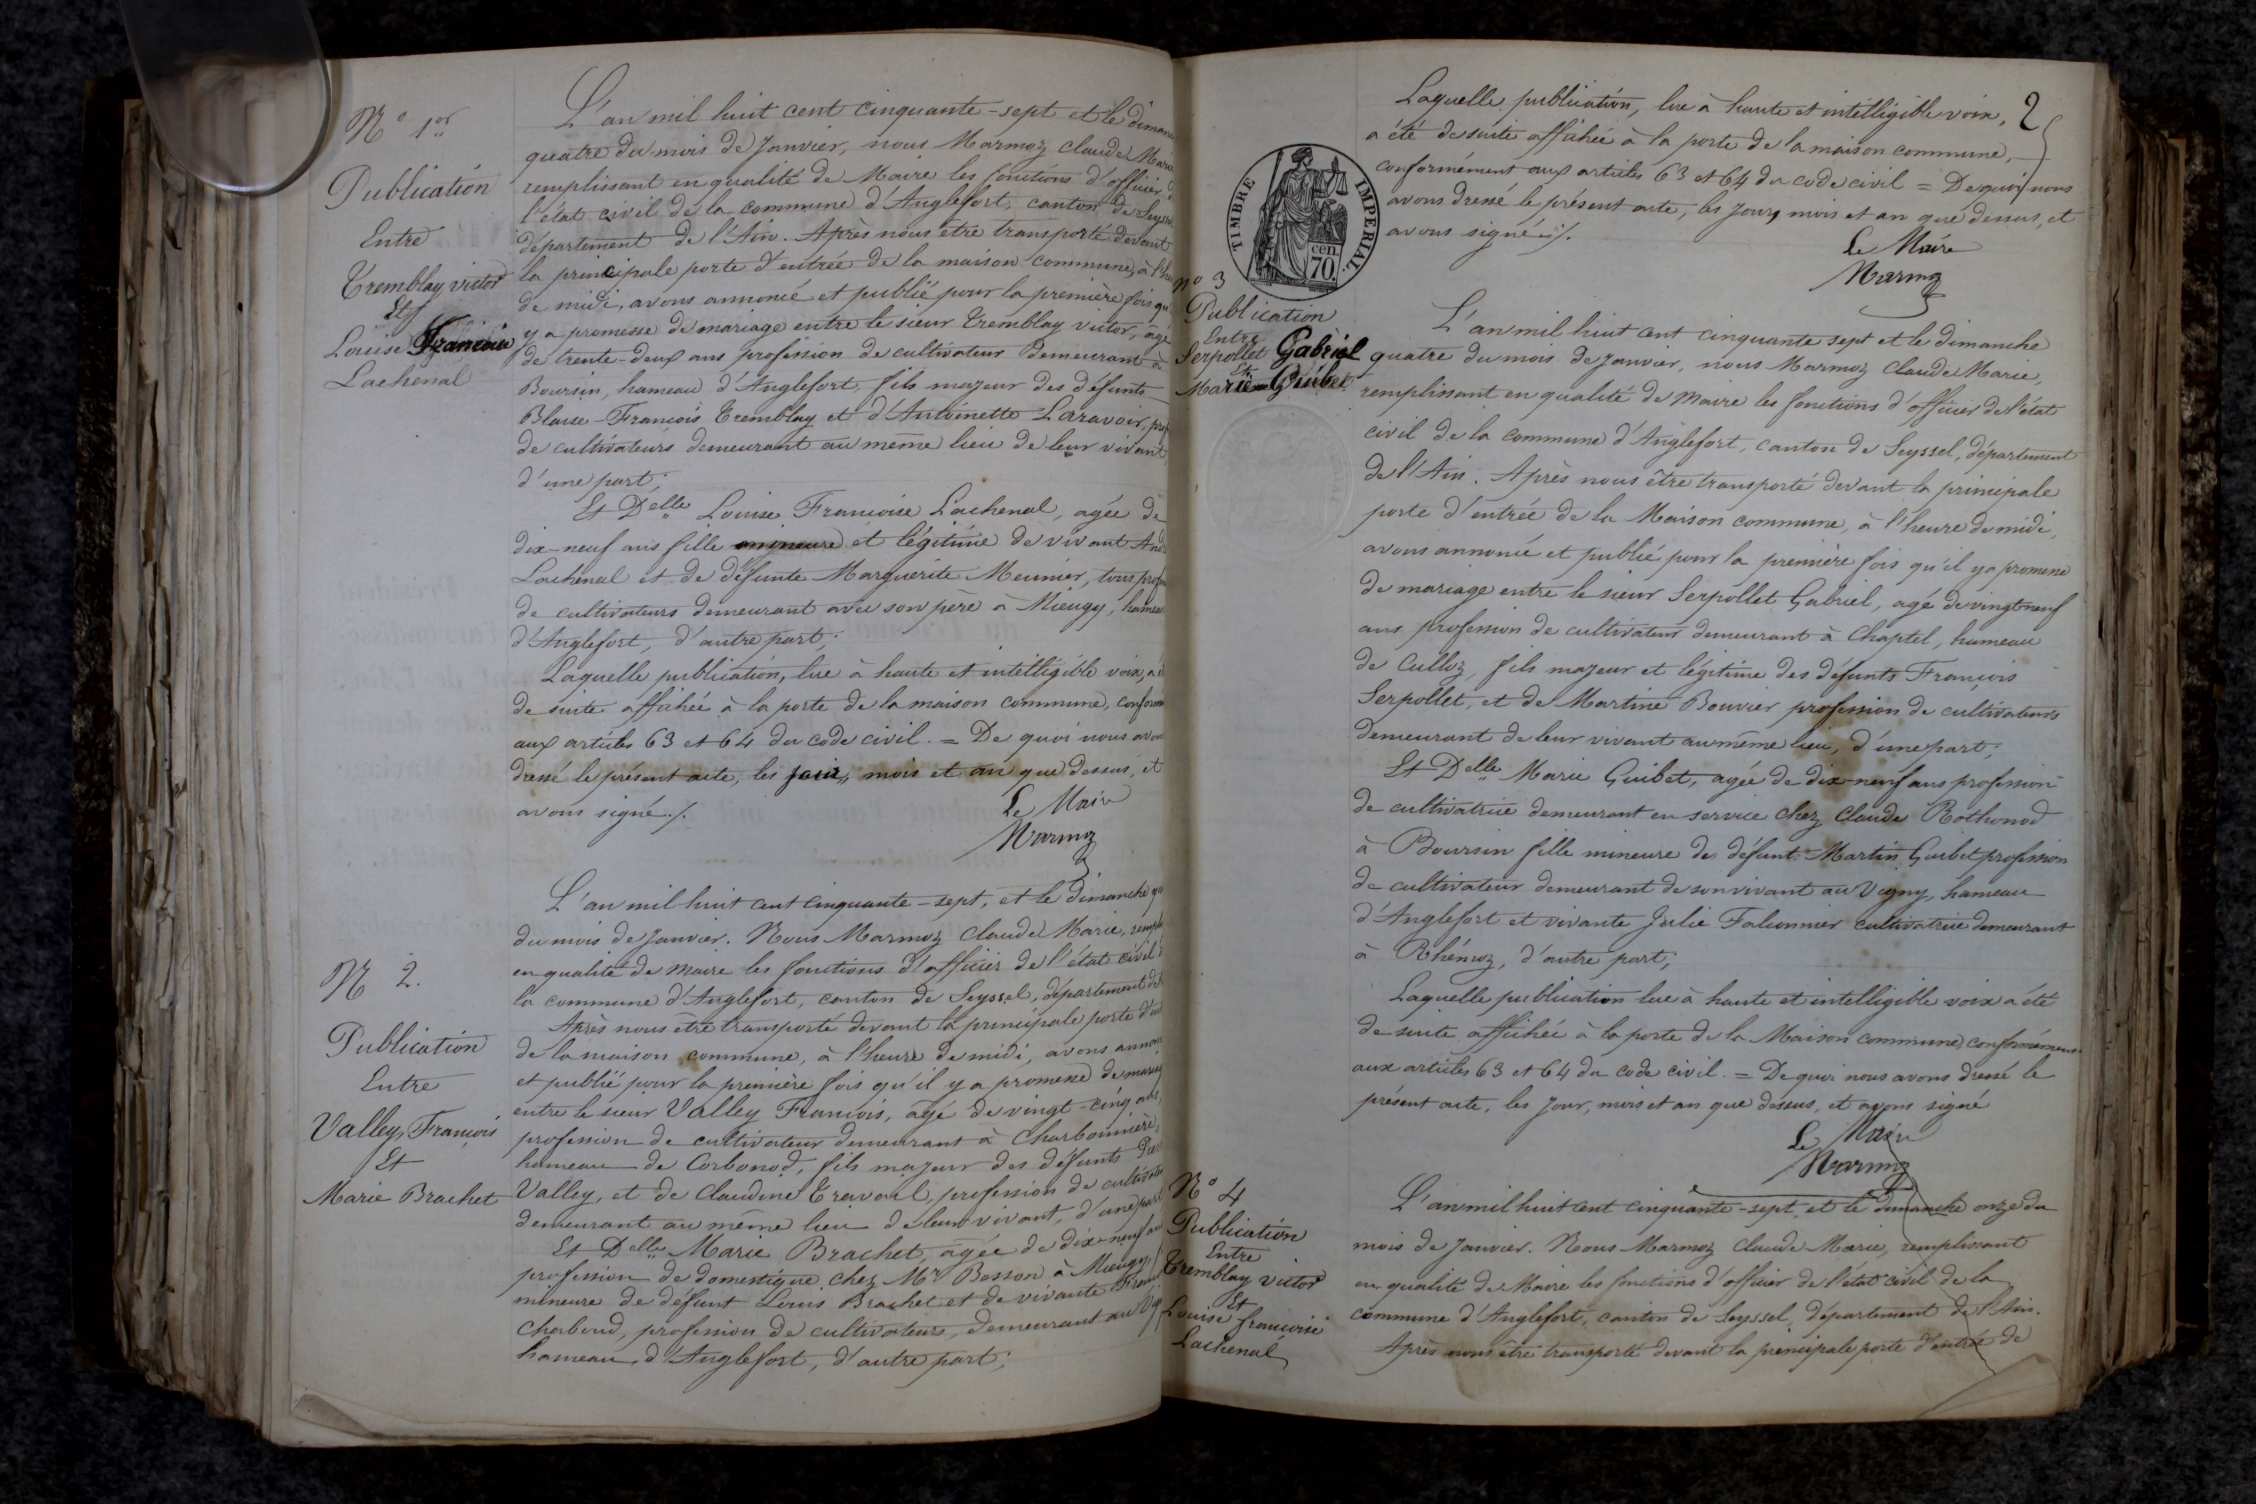 N° 1er
Publication
Entre
Tremblay victor
Et
Louise Francoise
Lachenal
L'an mil huit cent cinquante-sept et le diman
quatre du mois de Janvier, nous Marmoz Claude Marie
remplissant en qualité de Maire les fonctions d'officier d
l'état civil de la commune d'Anglefort, canton de Seyss
département de l'Ain. Après nous être transporté devant
la principale porte d'entrée de la maison commune, à l'h
de midi, avons annoncé et publié pour la première fois qu
y a promesse de mariage entre le sieur Tremblay victor, âgé
de trente-deux ans profession de cultivateur demeurant à
Boursin, hameau d'Anglefort, fils majeur des défunts
Blaise-François Tremblay et d'Antoinette Laravoir, prof
de cultivateurs demeurant au même lieu de leur vivant,
d'une part;
Et Delle Louise Francoise Lachenal, agée de
dix-neuf ans fille mineure et légitime de vivant And
Lachenal et de défunte Marguerite Meunier, tous prof
de cultivateurs demeurant avec son père à Mieugy, hameau
d'Anglefort, d'autre part;
Laquelle publication, lue à haute et intelligible voix, a é
de suite affichée à la porte de la maison commune, conform
aux articles 63 et 64 du code civil. = De quoi nous avon
dressé le présent acte, les jour, mois et an que dessus, et
avons signé./.
Le Maire
Marmoz
N 2.
Publication
Entre
Valley, François
Et
Marie Brachet
L'an mil huit cent cinquante-sept, et le dimanche qu
du mois de Janvier. Nous Marmoz Claude Marie, rempli
en qualité de maire les fonctions d'officier de l'état civil d
la commune d'Anglefort, canton de Seyssel, département de
Après nous être transporté devant la principale porte d'en
de la maison commune, à l'heure de midi, avons annon
et publié pour la première fois qu'il y a promesse de maria
entre le sieur Valley François, âgé de vingt-cinq ans,
profession de cultivateur demeurant à Charbonnière,
hameau de Corbonod, fils majeur des défunts
Valley, et de Claudine Travail, profession de cultivate
demeurant au même lieu de leur vivant, d'une part
Et Delle Marie Brachet, âgée de dix-neuf an
profession de domestique chez Mr Bosson à Mieugy,
mineure de défunt Louis Brachet et de vivante Fran
Charbond, profession de cultivateurs, demeurant au
hameau d'Anglefort, d'autre part;
2
Laquelle publication, lue à haute et intelligible voix,
a été de suite affichée à la porte de la maison commune,
conformément aux articles 63 et 64 du code civil = De quoi nous
avons dressé le présent acte, les jour, mois et an que dessus, et
avons signé./.
Le Maire
Marmoz
TIMBRE IMPERIAL.
cen.
70.
N° 3
Publication
Entre
Serpollet Gabriel
Et
Marie Guibet
L'an mil huit cent cinquante sept et le dimanche
quatre du mois de Janvier, nous Marmoz Claude Marie,
remplissant en qualité de maire les fonctions d'officier de l'état
civil de la commune d'Anglefort, canton de Seyssel, département
de l'Ain. Après nous être transporté devant la principale
porte d'entrée de la Maison commune, à l'heure de midi,
avons annoncé et publié pour la première fois qu'il y a promesse
de mariage entre le sieur Serpollet Gabriel, agé de vingt neuf
ans profession de cultivateur demeurant à Chaptel, hameau
de Culloz, fils majeur et légitime des défunts François
Serpollet, et de Martine Bouvier profession de cultivateurs
demeurant de leur vivant au même lieu, d'une part;
Et Delle Marie Guibet, agée de dix-neuf ans profession
de cultivatrice demeurant en service chez Claude Rothonod
à Boursin fille mineure de défunt Martin Guibet profession
de cultivateur demeurant de son vivant au Vigny, hameau
d'Anglefort et vivante Julie Falconnier cultivatrice demeurant
à Rhémoz, d'autre part;
Laquelle publication lue à haute et intelligible voix a été
de suite affichée à la porte de la Maison commune, conformément
aux articles 63 et 64 du code civil. = De quoi nous avons dressé le
présent acte, les jour, mois et an que dessus, et avons signé
Le Maire
Marmoz
N° 4
Publication
Entre
Tremblay victor
Et
Louise françoise
Lachenal
L'an mil huit cent cinquante-sept, et le dimanche onze du
mois de Janvier. Nous Marmoz Claude Marie, remplissant
en qualité de Maire les fonctions d'officier de l'état civil de la
commune d'Anglefort, canton de Seyssel, département de l'Ain.
Après nous être transporté devant la principale porte d'entrée de